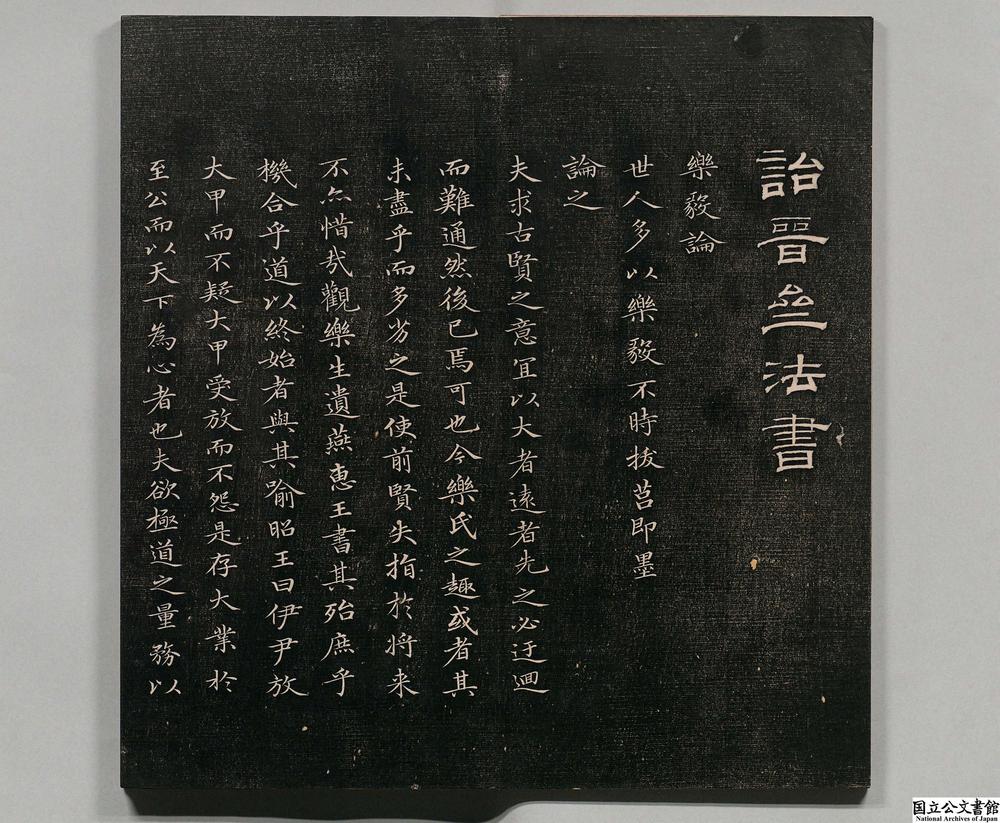 詒晉齋法書
樂毅論
世人多以樂毅不時拔莒即墨
論之
夫求古賢之意宜以大者遠者先之必迂迴
而難通然後已焉可也今樂氏之趣或者其
未盡乎而多劣之是使前賢失指於将来
不亦惜哉觀樂生遺燕惠王書其殆庶乎
機合乎道以終始者與其喻昭王曰伊尹放
大甲而不疑大甲受放而不怨是存大業於
至公而以天下為心者也夫欲極道之量務以
国立公文書館
National Archives of Japan